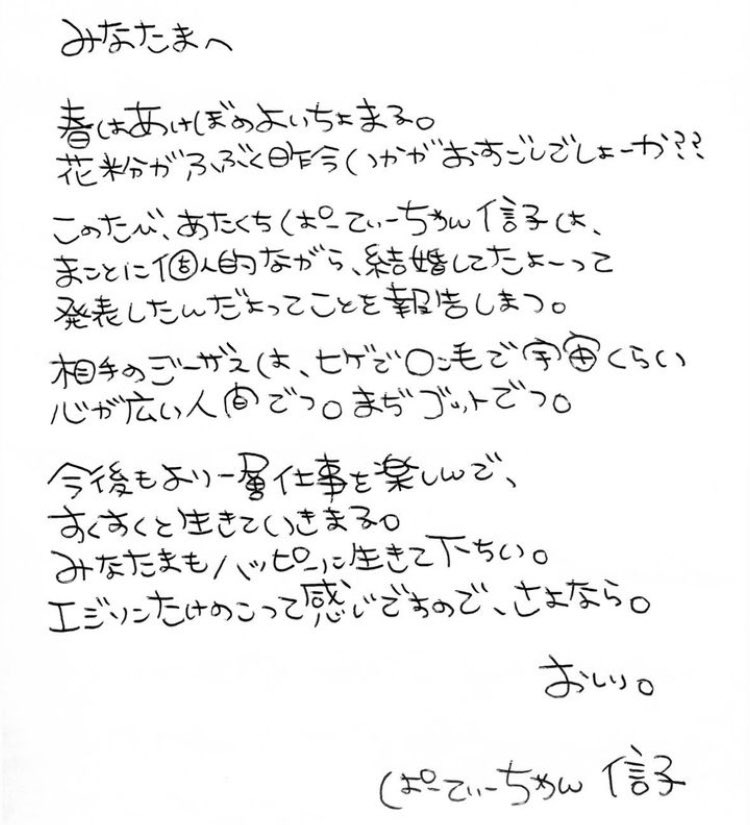 みなたまへ
春はあけぼのよいちょまる。
花粉がふぶく昨今いかがおすごしでしょーか??
このたび、あたくちぱーてぃーちゃん信子は、
まことに個人的ながら、結婚してたよーって
発表したんだよってことを報告しまつ。
相手のジーザスは、ヒゲでロン毛で宇宙くらい
心が広い人間でつ。まぢゴットでつ。
今後もより一層仕事を楽しんで、
すくすくと生きていきまる。
みなたまもハッピーに生きて下ちい。
エジソンたけのこって感じですので、さよなら。
おしり。
ぱーてぃーちゃん 信子